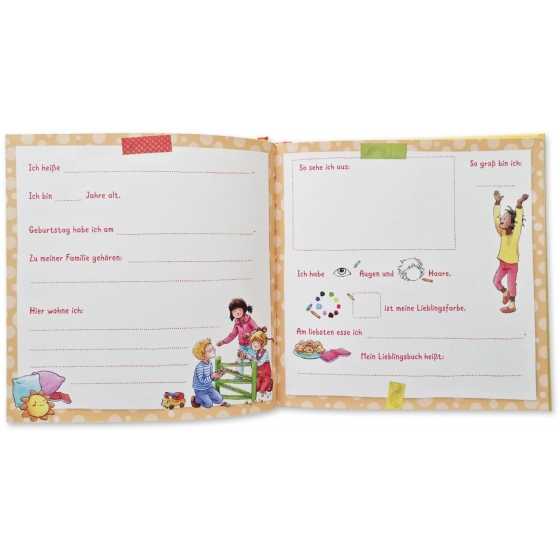 Ich heiße
Ich bin Jahre alt.
Geburtstag habe ich am
Zu meiner Familie gehören:
Hier wohne ich:
So sehe ich aus:
So groß bin ich:
Ich habe Augen und Haare.
ist meine Lieblingsfarbe.
Am liebsten esse ich
Mein Lieblingsbuch heißt: